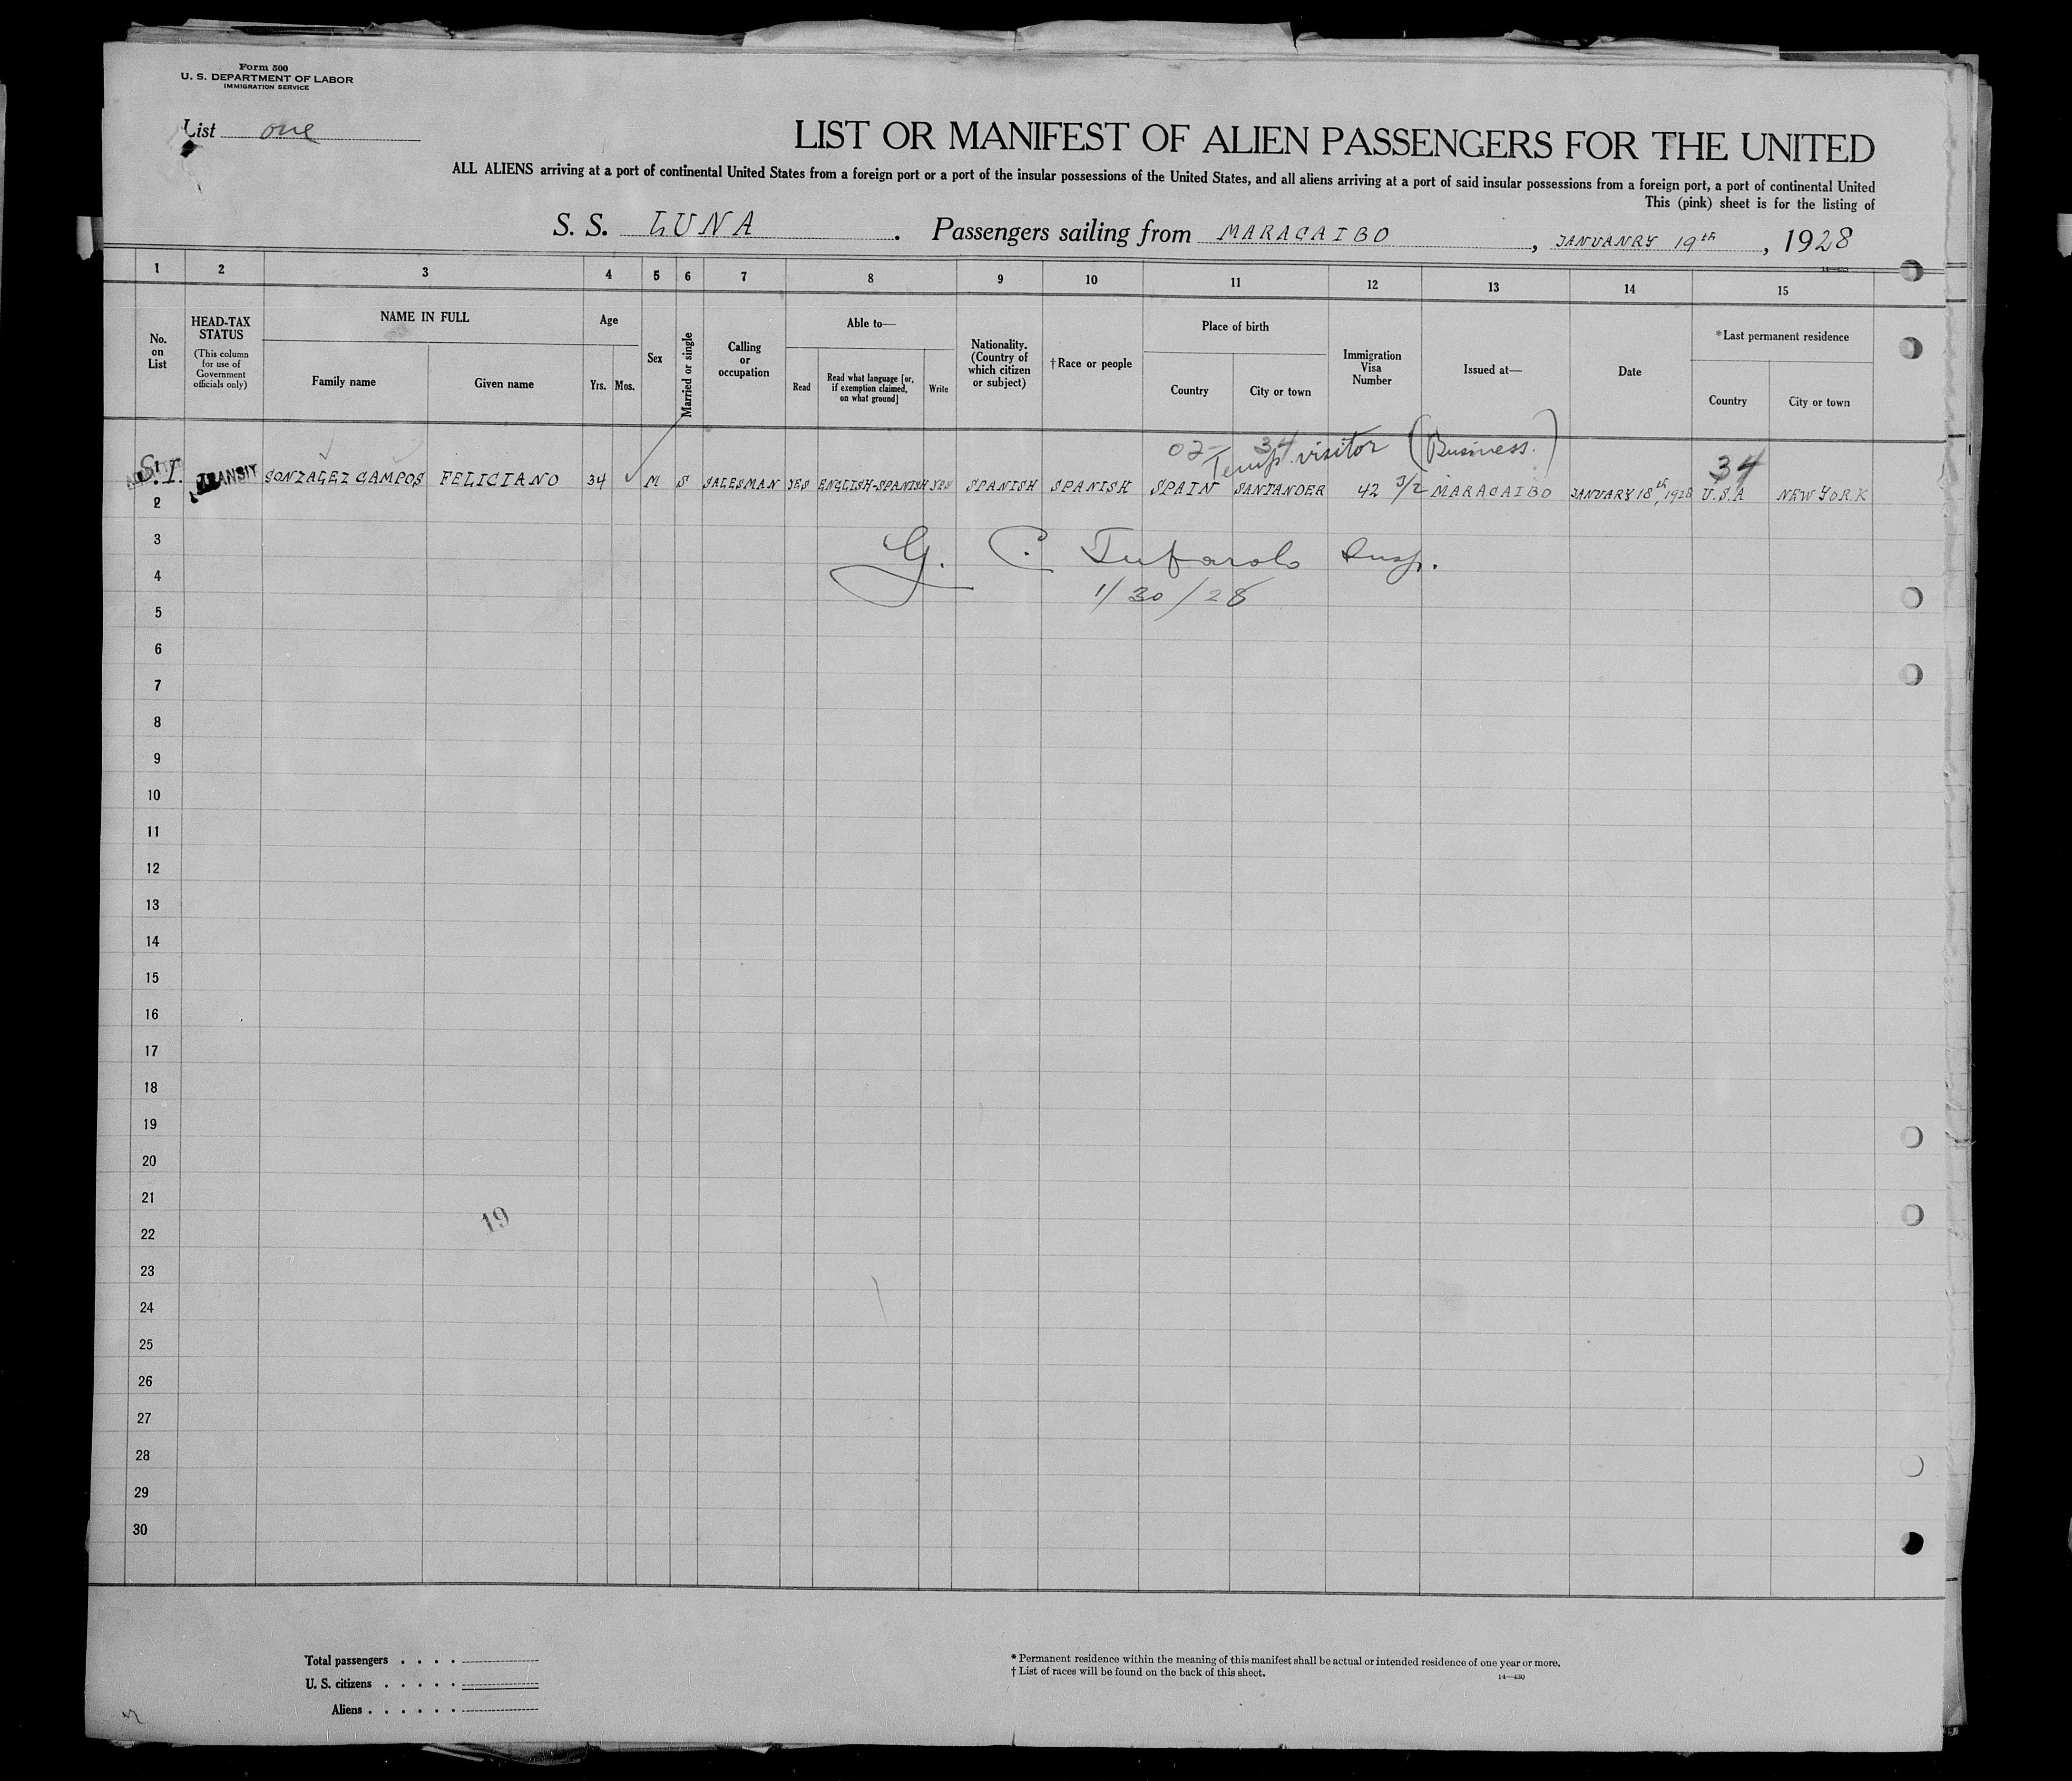 Form 500
U. S. DEPARTMENT OF LABOR
IMMIGRATION SERVICE
List one
LIST OR MANIFEST OF ALIEN PASSENGERS FOR THE UNITED
ALL ALIENS arriving at a port of continental United States from a foreign port or a port of the insular possessions of the United States, and all aliens arriving at a port of said insular possessions from a foreign port, a port of continental United
This (pink) sheet is for the listing of
S. S. LUNA. Passengers sailing from MARACAIBO, JANUANRY 19th, 1928
1 2 3 4 5 6 7 8 9 10 11 12 13 14 15
No. on List
HEAD-TAX STATUS
(This column for use of Government officials only)
NAME IN FULL
Family name
Given name
Age
Yrs.
Mos.
Sex
Married or single
Calling or occupation
Able to—
Read
Read what language [or, if exemption claimed, on what ground]
Write
Nationality. (Country of which citizen or subject)
†Race or people
Place of birth
Country
City or town
Immigration Visa Number
Issued at—
Date
*Last permanent residence
Country
City or town
02- 34
Temp. visitor (Business.)
34
S.I. TRANSIT GONZALEZ CAMPOS FELICIANO 34 M S SALESMAN YES ENGLISH-SPANISH YES SPANISH SPANISH SPAIN SANTANDER 42 3/2 MARACAIBO JANUARY 18th, 1928 U.S.A NEW YORK
2
3
G. C. Insp.
4
1/30/28
5
6
7
8
9
10
11
12
13
14
15
16
17
18
19
20
21
19
22
23
24
25
26
27
28
29
30
Total passengers . . . .
U. S. citizens . . . . .
Aliens . . . . . .
* Permanent residence within the meaning of this manifest shall be actual or intended residence of one year or more.
† List of races will be found on the back of this sheet.
14—430